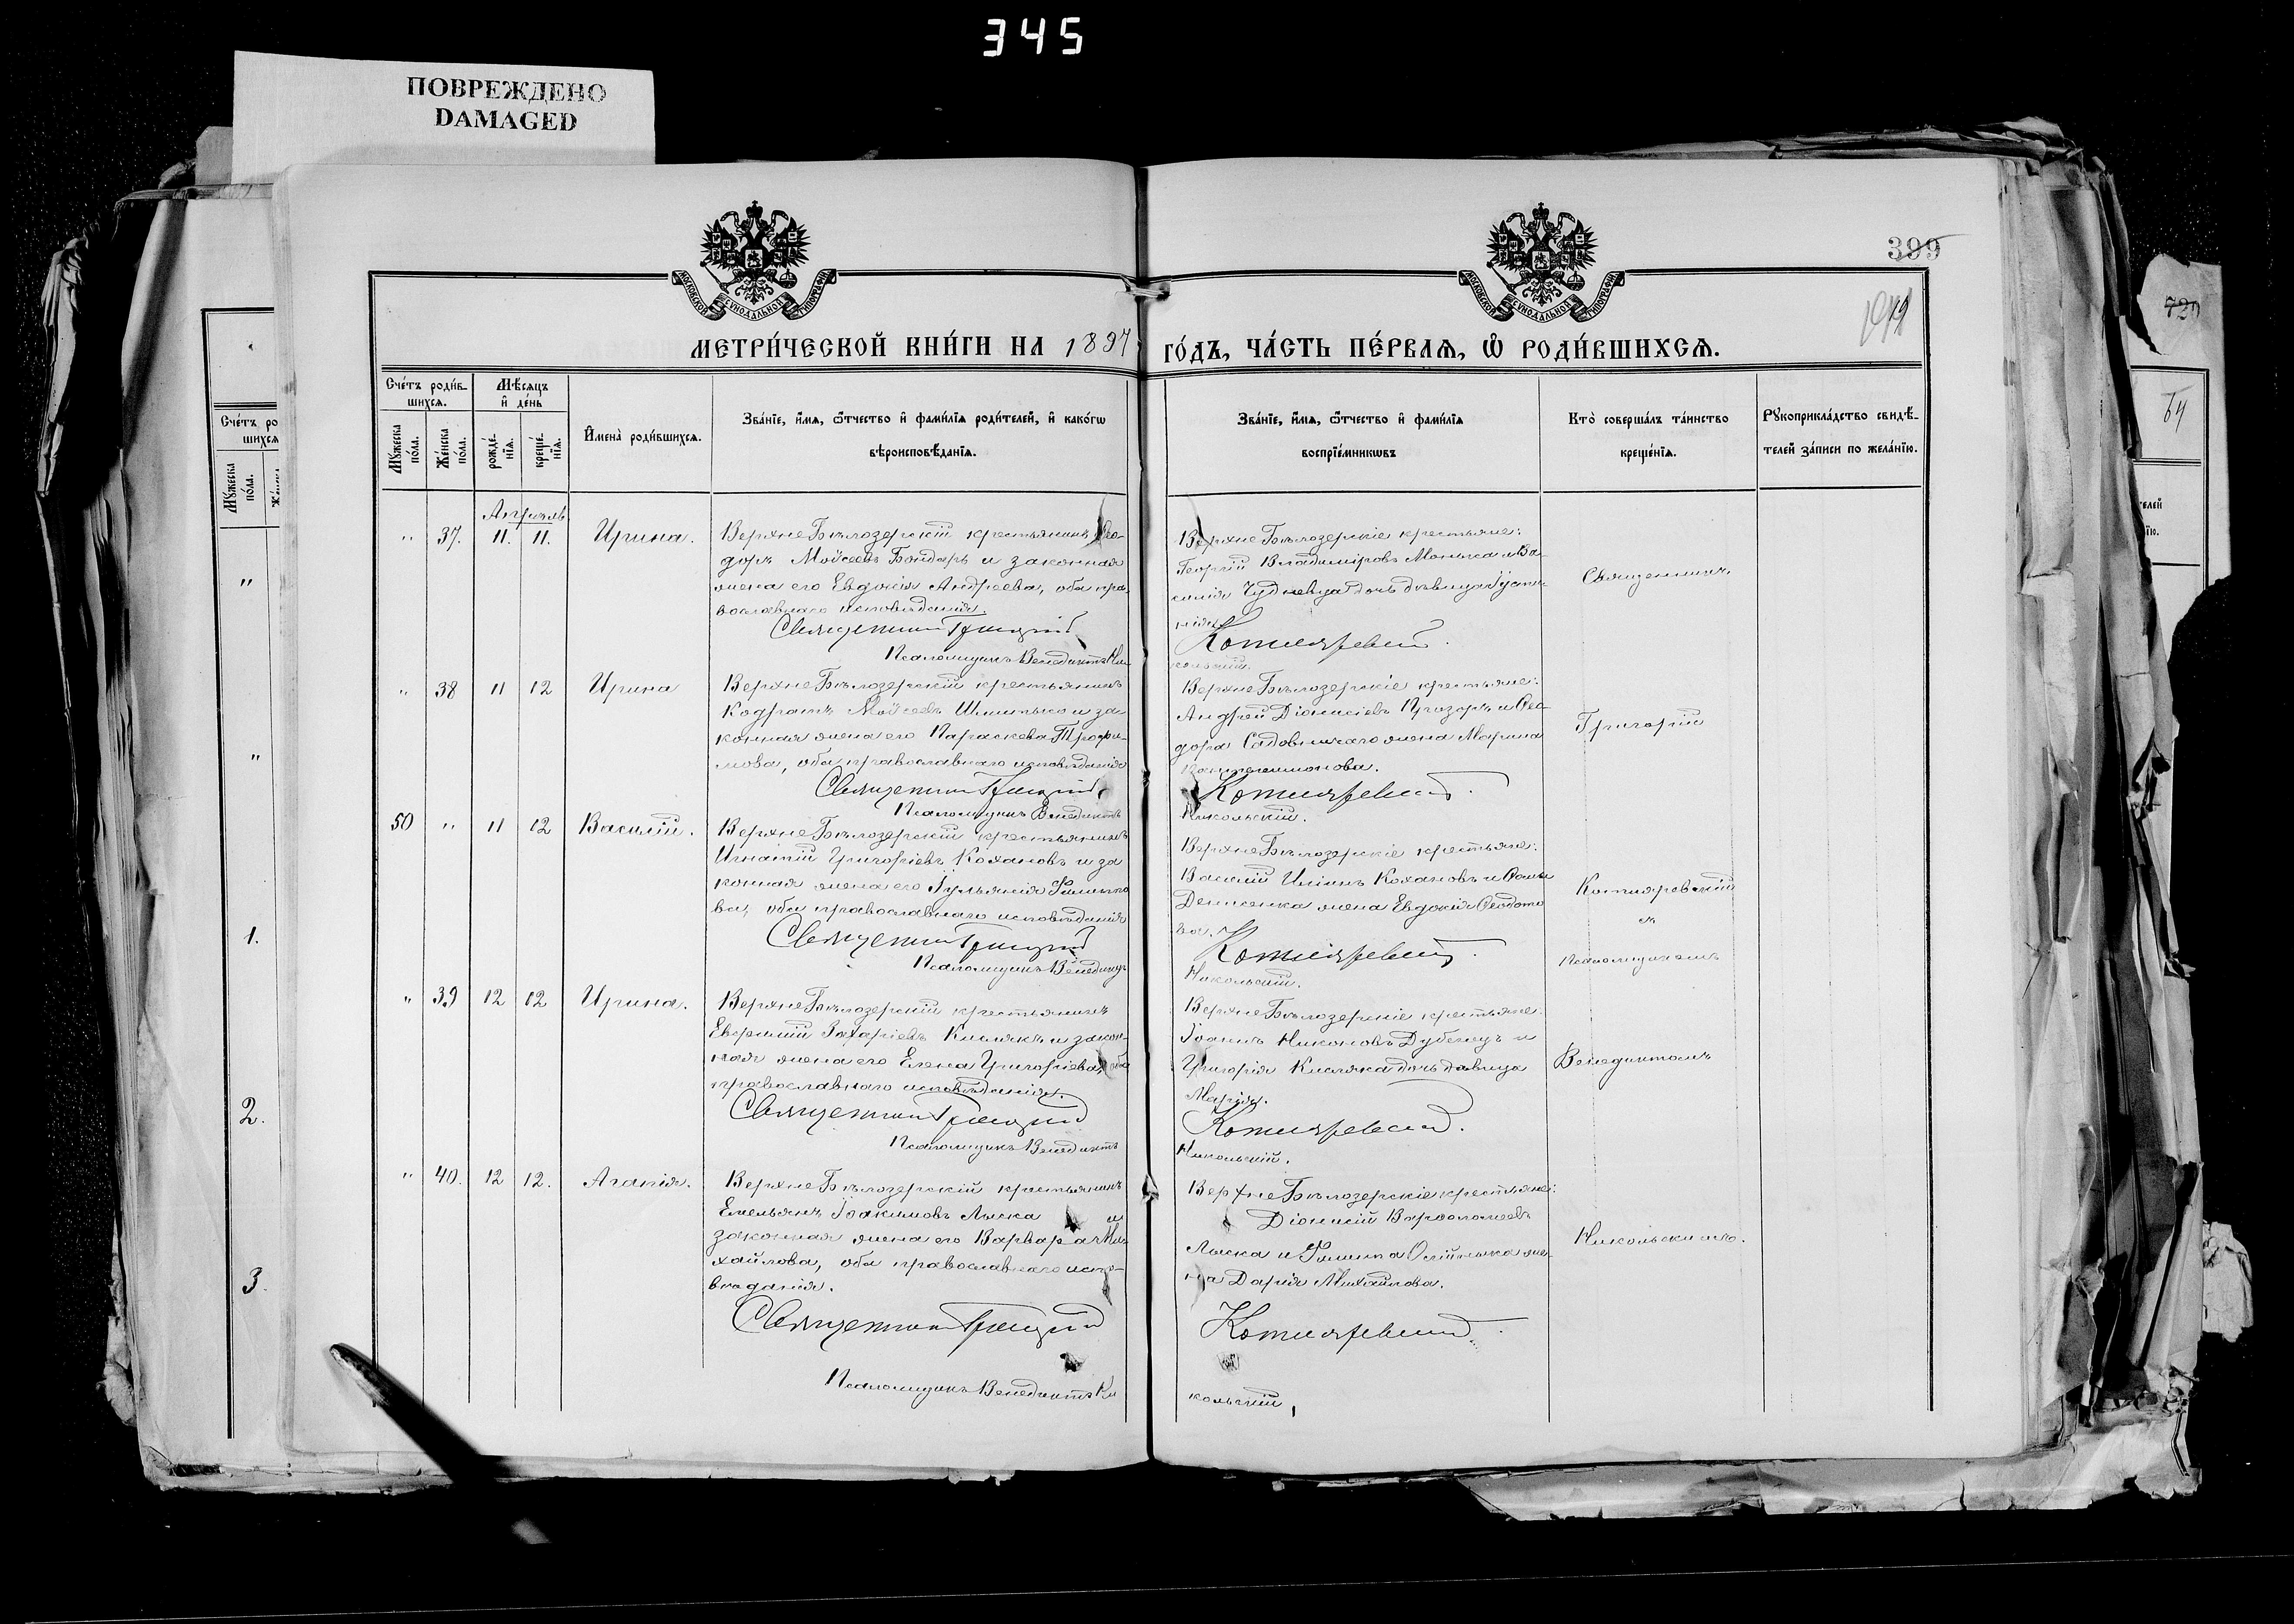 345
ПОВРЕЖДЕНО
DAMAGED
399
МОСКОВСКОЙ СѴНОДАЛЬНОЙ ТИПОГРАФІИ
МОСКОВСКОЙ СѴНОДАЛЬНОЙ ТИПОГРАФІИ
МЕТРИ́ЧЕСКОЙ КНИ́ГИ НА 1897 ГО́ДЪ, ЧА́СТЬ ПЕ́РВАЯ, Ѡ РОДИ́ВШИХСЯ.
Сче́тъ роди́в-
шихся.
Мѣ́сяцъ
и де́нь
Мꙋ́жеска
по́ла.
Же́нска
по́ла.
рожде́-
нїя.
креще́-
нїя.
И́мена̀ роди́вшихся.
Зва́нїе, и́мя, ѻ́тчество и фами́лїя роди́телей, и како́гѡ
вѣроисповѣ́данїя.
Зва́нїе, и́мя, ѻ́тчество и фами́лїя
воспрїе́мникѡвъ
Кто̀ соверша́лъ та́инство
креще́нїя.
Рꙋкоприкла́дство свидѣ́-
телей за́писи по жела́нїю.
Апрѣль
" 37. 11. 11. Ирина.
Верхне Бѣлозерскій крестьянинъ Ѳео-
доръ Моѵсеевъ Бондарь и законная
жена его Евдокія Андреева, оба пра-
вославнаго исповѣданія.
Священникъ Григорій
Псаломщикъ Венедиктъ Ни-
Верхне Бѣлозерскіе крестьяне:
Георгій Владиміровъ Монька и Ва-
силія Чуднивца дочь дѣвица Іусти-
нія.
Котляревскій.
кольскій.
Священникъ
" 38 11 12 Ирина
Верхне Бѣлозерскій крестьянинъ
Кодратъ Моѵсеевъ Шмитько и за
конная жена его Параскева Трофи-
мова, оба православнаго исповѣданія
Священникъ Григорій
Псаломщикъ Венедиктъ
Верхне Бѣлозерскіе крестьяне:
Андрей Діонисіевъ Призоръ и Ѳео-
дора Садовничаго жена Марина
Пантелеимонова.
Котляревскій.
Никольскій.
Григорій
50 " 11 12 Василій.
Верхне Бѣлозерскій крестьянинъ
Игнатій Григоріевъ Кохановъ и за
конная жена его Іульянія Филиппо
ва, оба православнаго исповѣданія
Священникъ Григорій
Псаломщикъ Венедиктъ
Верхне Бѣлозерскіе крестьяне:
Василій Ильинъ Кохановъ и Ѳомы
Денисенка жена Евдокія Ѳеодото
ва.
Котляревскій.
Никольскій.
Котляревскій
съ
псаломщикомъ
" 39 12 12 Ирина.
Верхне Бѣлозерскій крестьянинъ
Евфимій Захаріевъ Кислякъ и закон-
ная жена его Елена Григоріева, оба
православнаго исповѣданія.
Священникъ Григорій
Псаломщикъ Венедиктъ
Верхне Бѣлозерскіе крестьяне:
Іоаннъ Никоновъ Дубенецъ и
Григорія Кисляка дочь дѣвица
Марія.
Котляревскій.
Никольскій.
Венедиктомъ
" 40. 12 12. Агапія.
Верхне Бѣлозерскій крестьянинъ
Емельянъ Іоакимовъ Лыска и
законная жена его Варвара Ми-
хайлова, оба православнаго испо-
вѣданія.
Священникъ Григорій
Псаломщикъ Венедиктъ Ни
Верхне Бѣлозерскіе крестьяне:
Діонисій Варѳоломеевъ
Лыска и Филиппа Олійныка же-
на Дарія Михайлова.
Котляревскій.
кольскій,
Никольскимъ.
Сче́тъ ро
шихся
Мꙋ́жеска
по́ла.
"
"
1.
2.
3.
720
64
телей
їю.